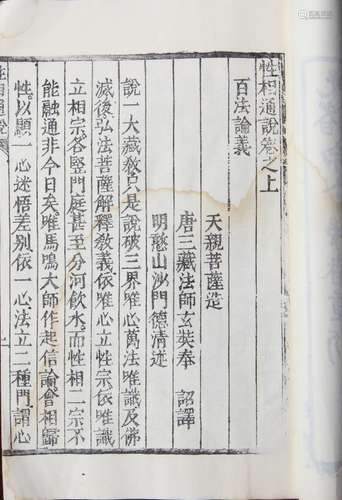 性相通說卷之上
百法論義
天親菩薩造
唐三藏法師玄奘奉　詔譯
明憨山沙門德清述
說一大藏教只是說破三界唯心萬法唯識及佛
滅後弘法菩薩解釋教義依唯心立性宗依唯識
立相宗各竪門庭甚至分河飲水而性相二宗不
能融通非今日矣唯馬鳴大師作起信論會相歸
性以顯一心迷悟差別依一心法立二種門謂心
性相通說
上